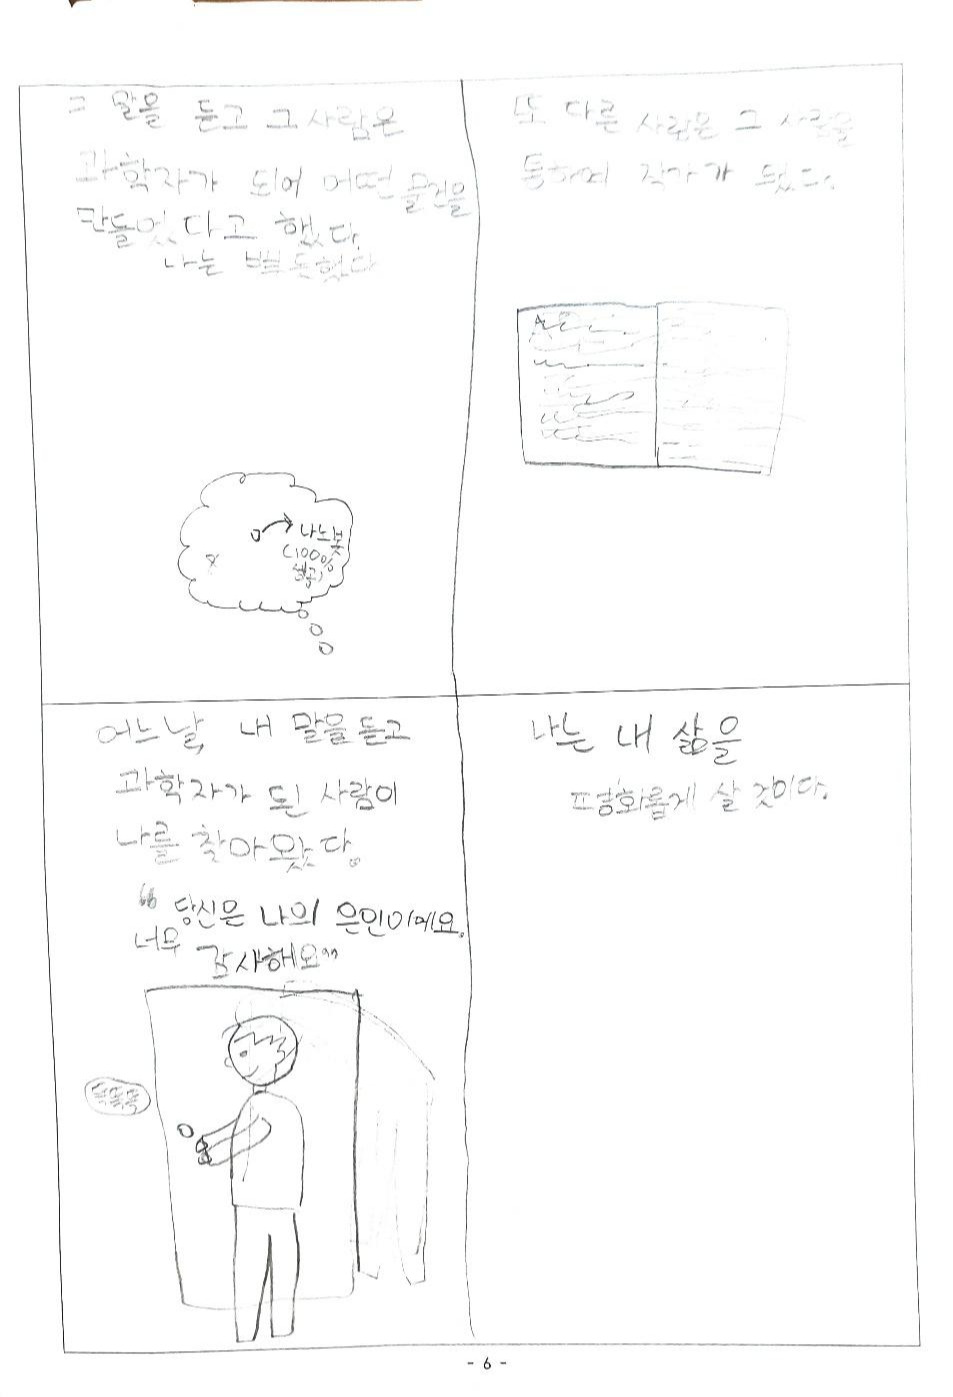 그 말을 듣고 그 사람은
과학자가 되어 어떤 물건을
만들었다고 했다.
나는 뿌듯했다
나노봇
(100%
성공)
또 다른 사람은 그 사람을
통하여 작가가 됐다.
어느날, 내 말을 듣고
과학자가 된 사람이
나를 찾아왔다.
“당신은 나의 은인이에요.
너무 감사해요”
나는 내 삶을
평화롭게 살 것이다.
- 6 -